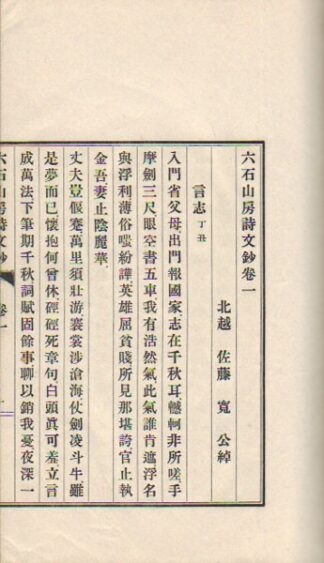 六石山房詩文鈔卷一
北越 佐藤 寬 公綽
言志丁丑
入門省父母出門報國家志在千秋耳轗軻非所嗟手
摩劍三尺眼空書五車我有浩然氣此氣誰肯遮浮名
與浮利薄俗嗤紛譁英雄屈貧賤所見那堪誇官止執
金吾妻止陰麗華
丈夫豈偃蹇萬里須壯游褰裳涉滄海仗劍凌斗牛雖
是夢而已懷抱何曾休硜硜死章句白頭眞可羞立言
成萬法下筆期千秋詞賦固餘事聊以銷我憂夜深一
六石山房詩文鈔 卷一